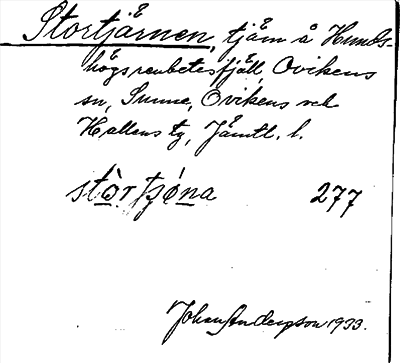 Stortjärnen, tjärn å Hunds-
högsrenbetesfjäll, Ovikens
sn, Sunne, Ovikens och
Hallens tg, Jämtl. l.
stòrtjóna 277
Johan Anderzson 1933.